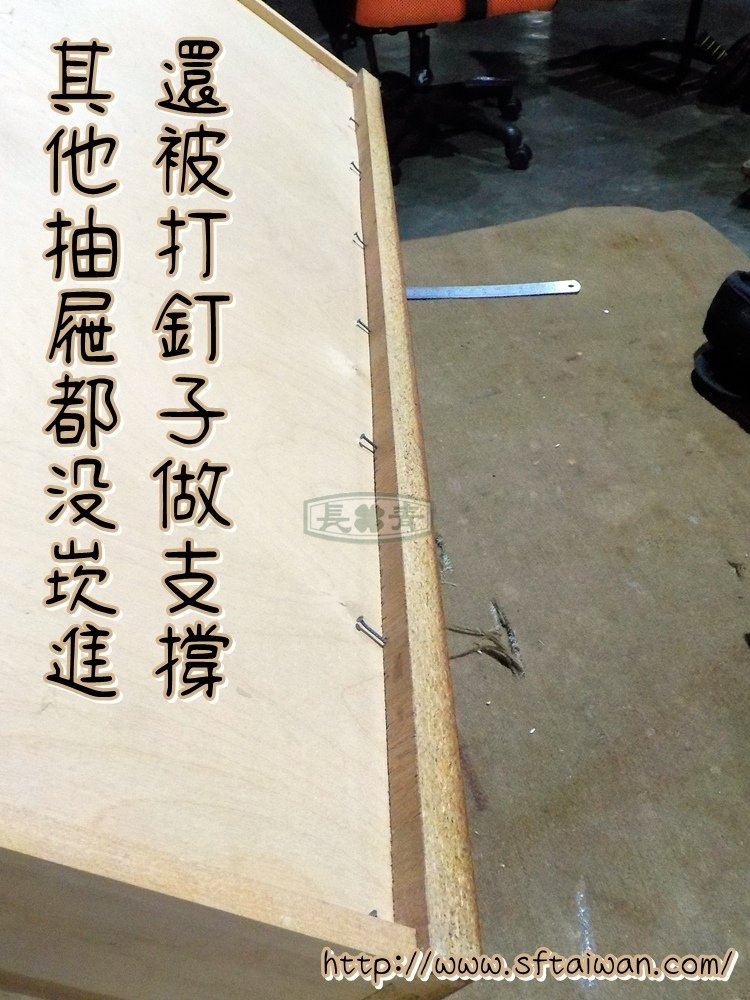 還被打釘子做支撐
其他抽屜都没崁進
長青
http://www.sftaiwan.com/